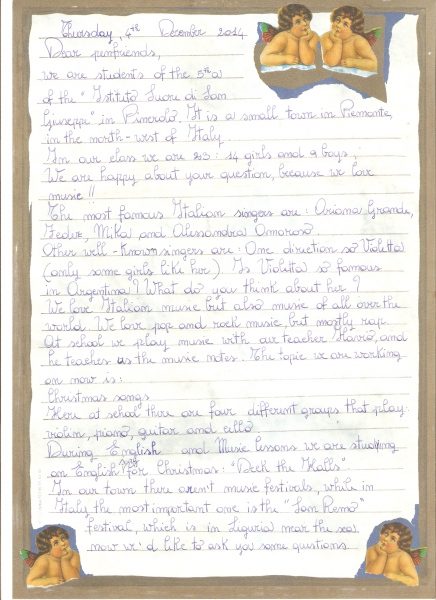 Thursday, 4th December 2014
Dear penfriends,
we are students of the 5th a
of the "Istituto Suore di San
Giuseppe" in Pinerolo. It is a small town in Piemonte,
in the north-west of Italy.
In our class we are 23: 14 girls and 9 boys;
We are happy about your question, because we love
music!!
The most famous Italian singers are: Ariana Grande,
Fedez, Mika and Alessandra Amoroso
Other well-known singers are: One direction so Violetta
(only some girls like her). Is Violetta so famous
in Argentina? What do you think about her?
We love Italian music but also music of all over the
world. We love pop and rock music, but mostly rap.
At school we play music with our teacher Flavio, and
he teaches us the music notes. The topic we are working
on now is:
Christmas songs
Here at school there are four different groups that play:
violin, piano, guitar and cello
During English and Music lessons we are studying
on English song for Christmas: "Deck the Halls"
In our town there aren't music festivals, while in
Italy the most important one is the "San Remo"
festival, which is in Liguria near the sea.
now we'd like to ask you some questions.